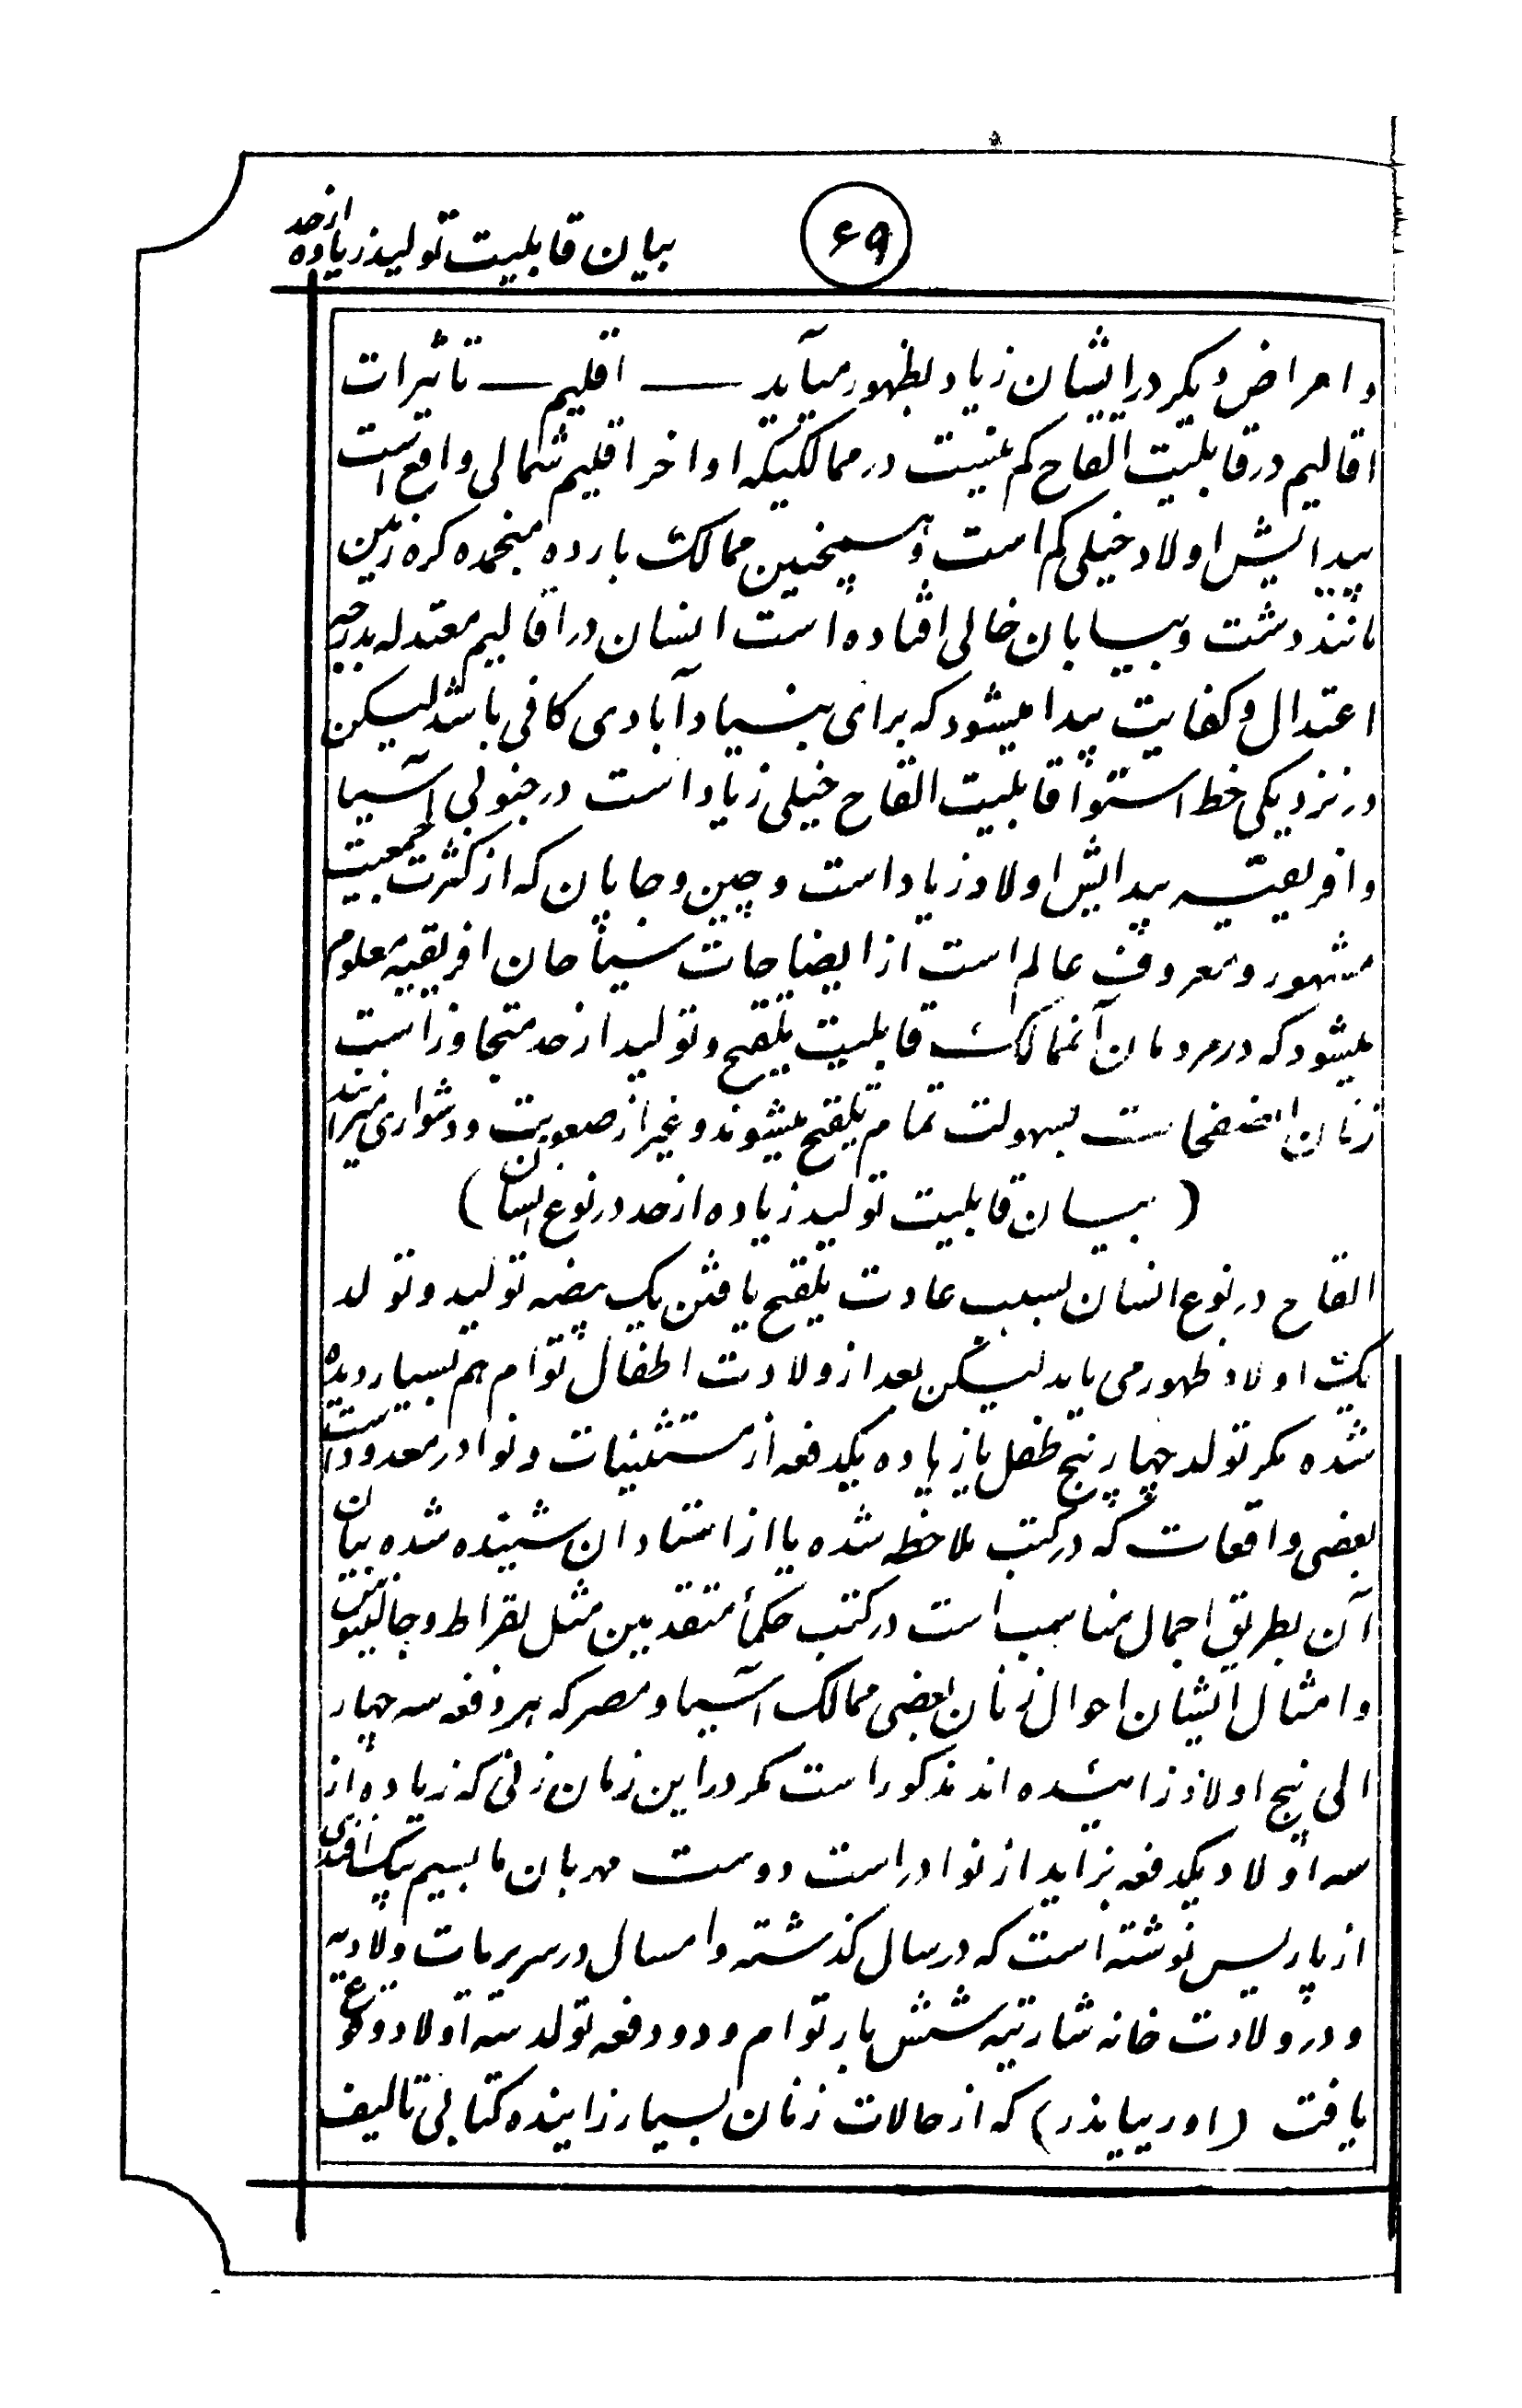 ۶۹
بیان قابلیت تولید زیاده از حد
و امراض دیگر در ایشان زیاد بظهور میآید — اقلیم — تاثیرات
اقالیم در قابلیت القاح کم نیست در ممالکیکه اواخر اقلیم شمالی واقع است
پیدایش اولاد خیلی کم است و همچنین ممالک بارده منجمده کره زمین
مانند دشت و بیابان خالی افتاده است انسان در اقالیم معتدله بدرجه
اعتدال و کفایت پیدا میشود که برای بنیاد آبادی کافی باشد لیکن
در نزدیکی خط استوا قابلیت القاح خیلی زیاد است در جنوبی آسیا
و افریقیه پیدایش اولاد زیاد است و چین و جاپان که از کثرت جمعیت
مشهور و معروف عالم است از ایضاحات سیاحان افریقیه معلوم
میشود که در مردمان آنممالک قابلیت تلقیح و تولید از حد متجاوز است
زنان بسهولت تمام تلقیح میشوند و غیر از صعوبت و دشواری میزایند
( بیان قابلیت تولید زیاده از حد در نوع انسان )
القاح در نوع انسان بسبب عادت تلقیح یافتن یک بیضه تولید و تولد
یک اولاد ظهور می یابد لیکن بعد از ولادت اطفال توام هم بسیار دیده
شده مگر تولد چهار پنج طفل یا زیاده یکدفعه از مستثنیات و نوادر معدود است
بعضی واقعات که در کتب ملاحظه شده یا از استادان شنیده شده بیان
آن بطریق اجمال مناسب است در کتب حکمأ متقدمین مثل بقراط و جالینوس
و امثال ایشان احوال زنان بعضی ممالک آسیا و مصر که هر دفعه سه چهار
الی پنج اولاد زائیده اند مذکور است مگر در این زمان زنی که زیاده از
سه اولاد یکدفعه بزاید از نوادر است دوست مهربان ما بسیم بیک افندی
از پاریس نوشته است که در سال گذشته و امسال در سریریات ولادیه
و در ولادت خانه شارتیه شش بار توام و دو دفعه تولد سه اولاد وقوع
یافت ( ) که از حالات زنان بسیار زاینده کتابی تالیف